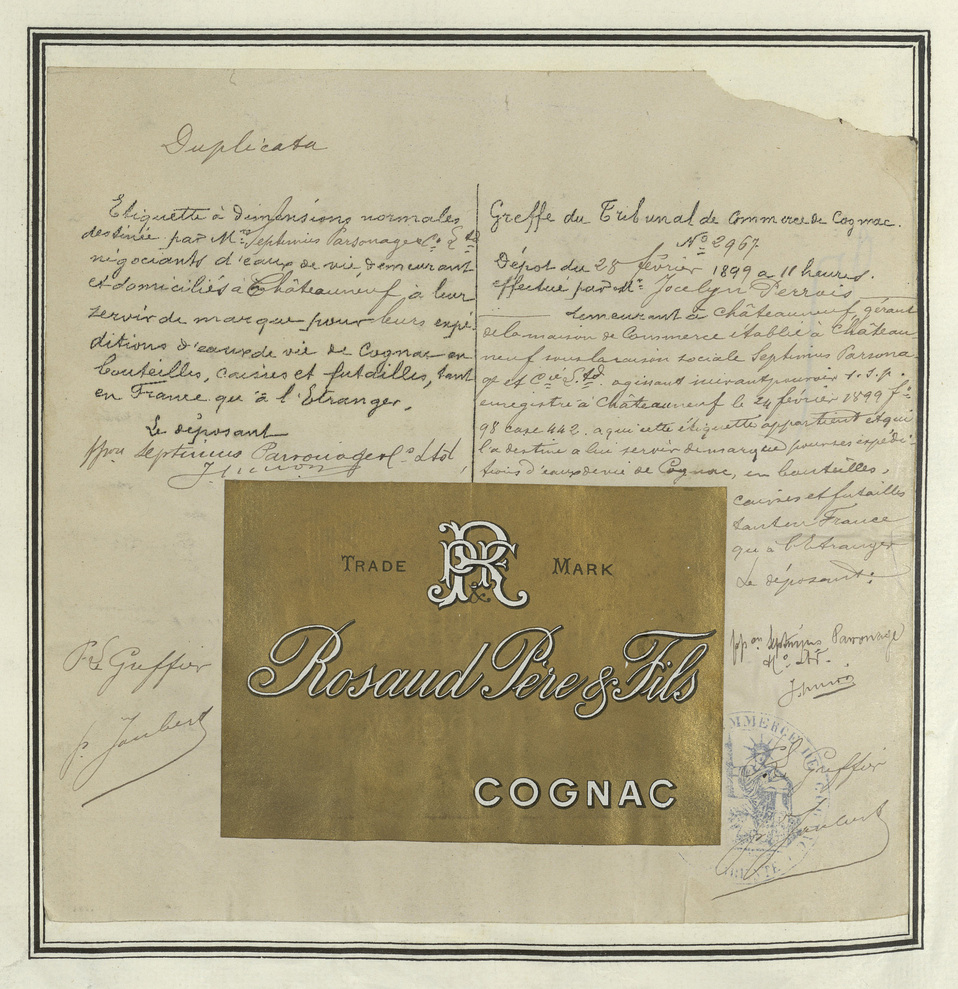 Duplicata
Etiquette à dimensions normales
destinée par Mrs Septimus Parsonage Co Ltd
négociants d'eaux de vie, demeurant
et domiciliés à Châteauneuf, à leur
servir de marque pour leurs expé-
ditions d'eaux de vie de Cognac en
bouteilles, caisses et futailles, tant
en France qu'à l'Etranger.
Le déposant
ppon Septimus Parsonage Co Ltd
Greffe du Tribunal de Commerce de Cognac.
No 2967
Dépôt du 28 février 1899 à 11 heures.
effectué par Mr Jocelyn Perrois
demeurant à Châteauneuf, gérant
de la maison de Commerce établie à Château-
neuf sous la raison sociale Septimus Parsona-
ge et Cie Ltd. agissant suivant pouvoir s.s.p.
enregistré à Châteauneuf le 24 février 1899 fo
98 case 442. à qui cette étiquette appartient et qui
l'a destine à lui servir de marque pour ses expédi-
tions d'eaux de vie de Cognac, en bouteilles,
caisses et futailles
tant en France
qu'à l'Etranger
Le déposant:
ppon Septimus Parsonage
& Co Ltd.
TRADE PR&F MARK
Rosaud Père & Fils
COGNAC
Pr Le Greffier
P. Joubert
Greffier
Joubert
COMMERCE DE
CHARENTE